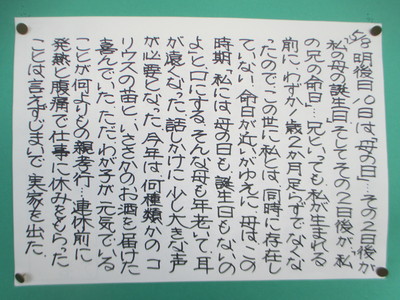 5/8 明後日10日は、「母の日」…その2日後が
私の母の誕生日、そしてその2日後が、私
の兄の命日…兄といっても、私が生まれる
前に、わずか1歳2か月足らずで亡くな
ったので、この世に、私とは、同時に存在し
ていない。命日が近いがゆえに、母は、この
時期、「私には、母の日も、誕生日もないの
よ」と口にする。そんな母も年老いて、耳
が遠くなった。話しかけに、少し大きな声
が必要となった。今年は、何種類かの「コ
リウス」の苗と、いくらかのお酒を届けた
喜んでいた。ただ、わが子が元気でいる
ことが何よりの親孝行…連休前に
発熱と腹痛で仕事に休みをもらった
ことは、言えずじまいで、実家を出た。